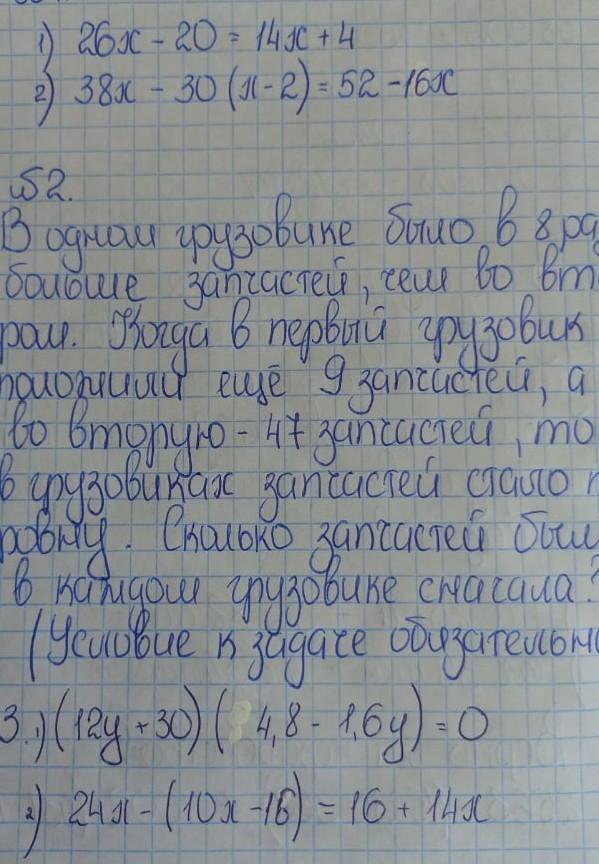 1) 26х - 20 = 14х + 4
2) 38х - 30 (х - 2) = 52 - 16х
№2.
В одном грузовике было в 8 ра
больше запчастей, чем во вт
ром. Когда в первый грузовик
положили ещё 9 запчастей, а
во вторую - 47 запчастей, то
в грузовиках запчастей стало п
ровну. Сколько запчастей был
в каждом грузовике сначала?
(Условие к задаче обязательн
3. 1) (12y + 30) ( 4,8 - 1,6y) = 0
2) 24х - (10х - 16) = 16 + 14х